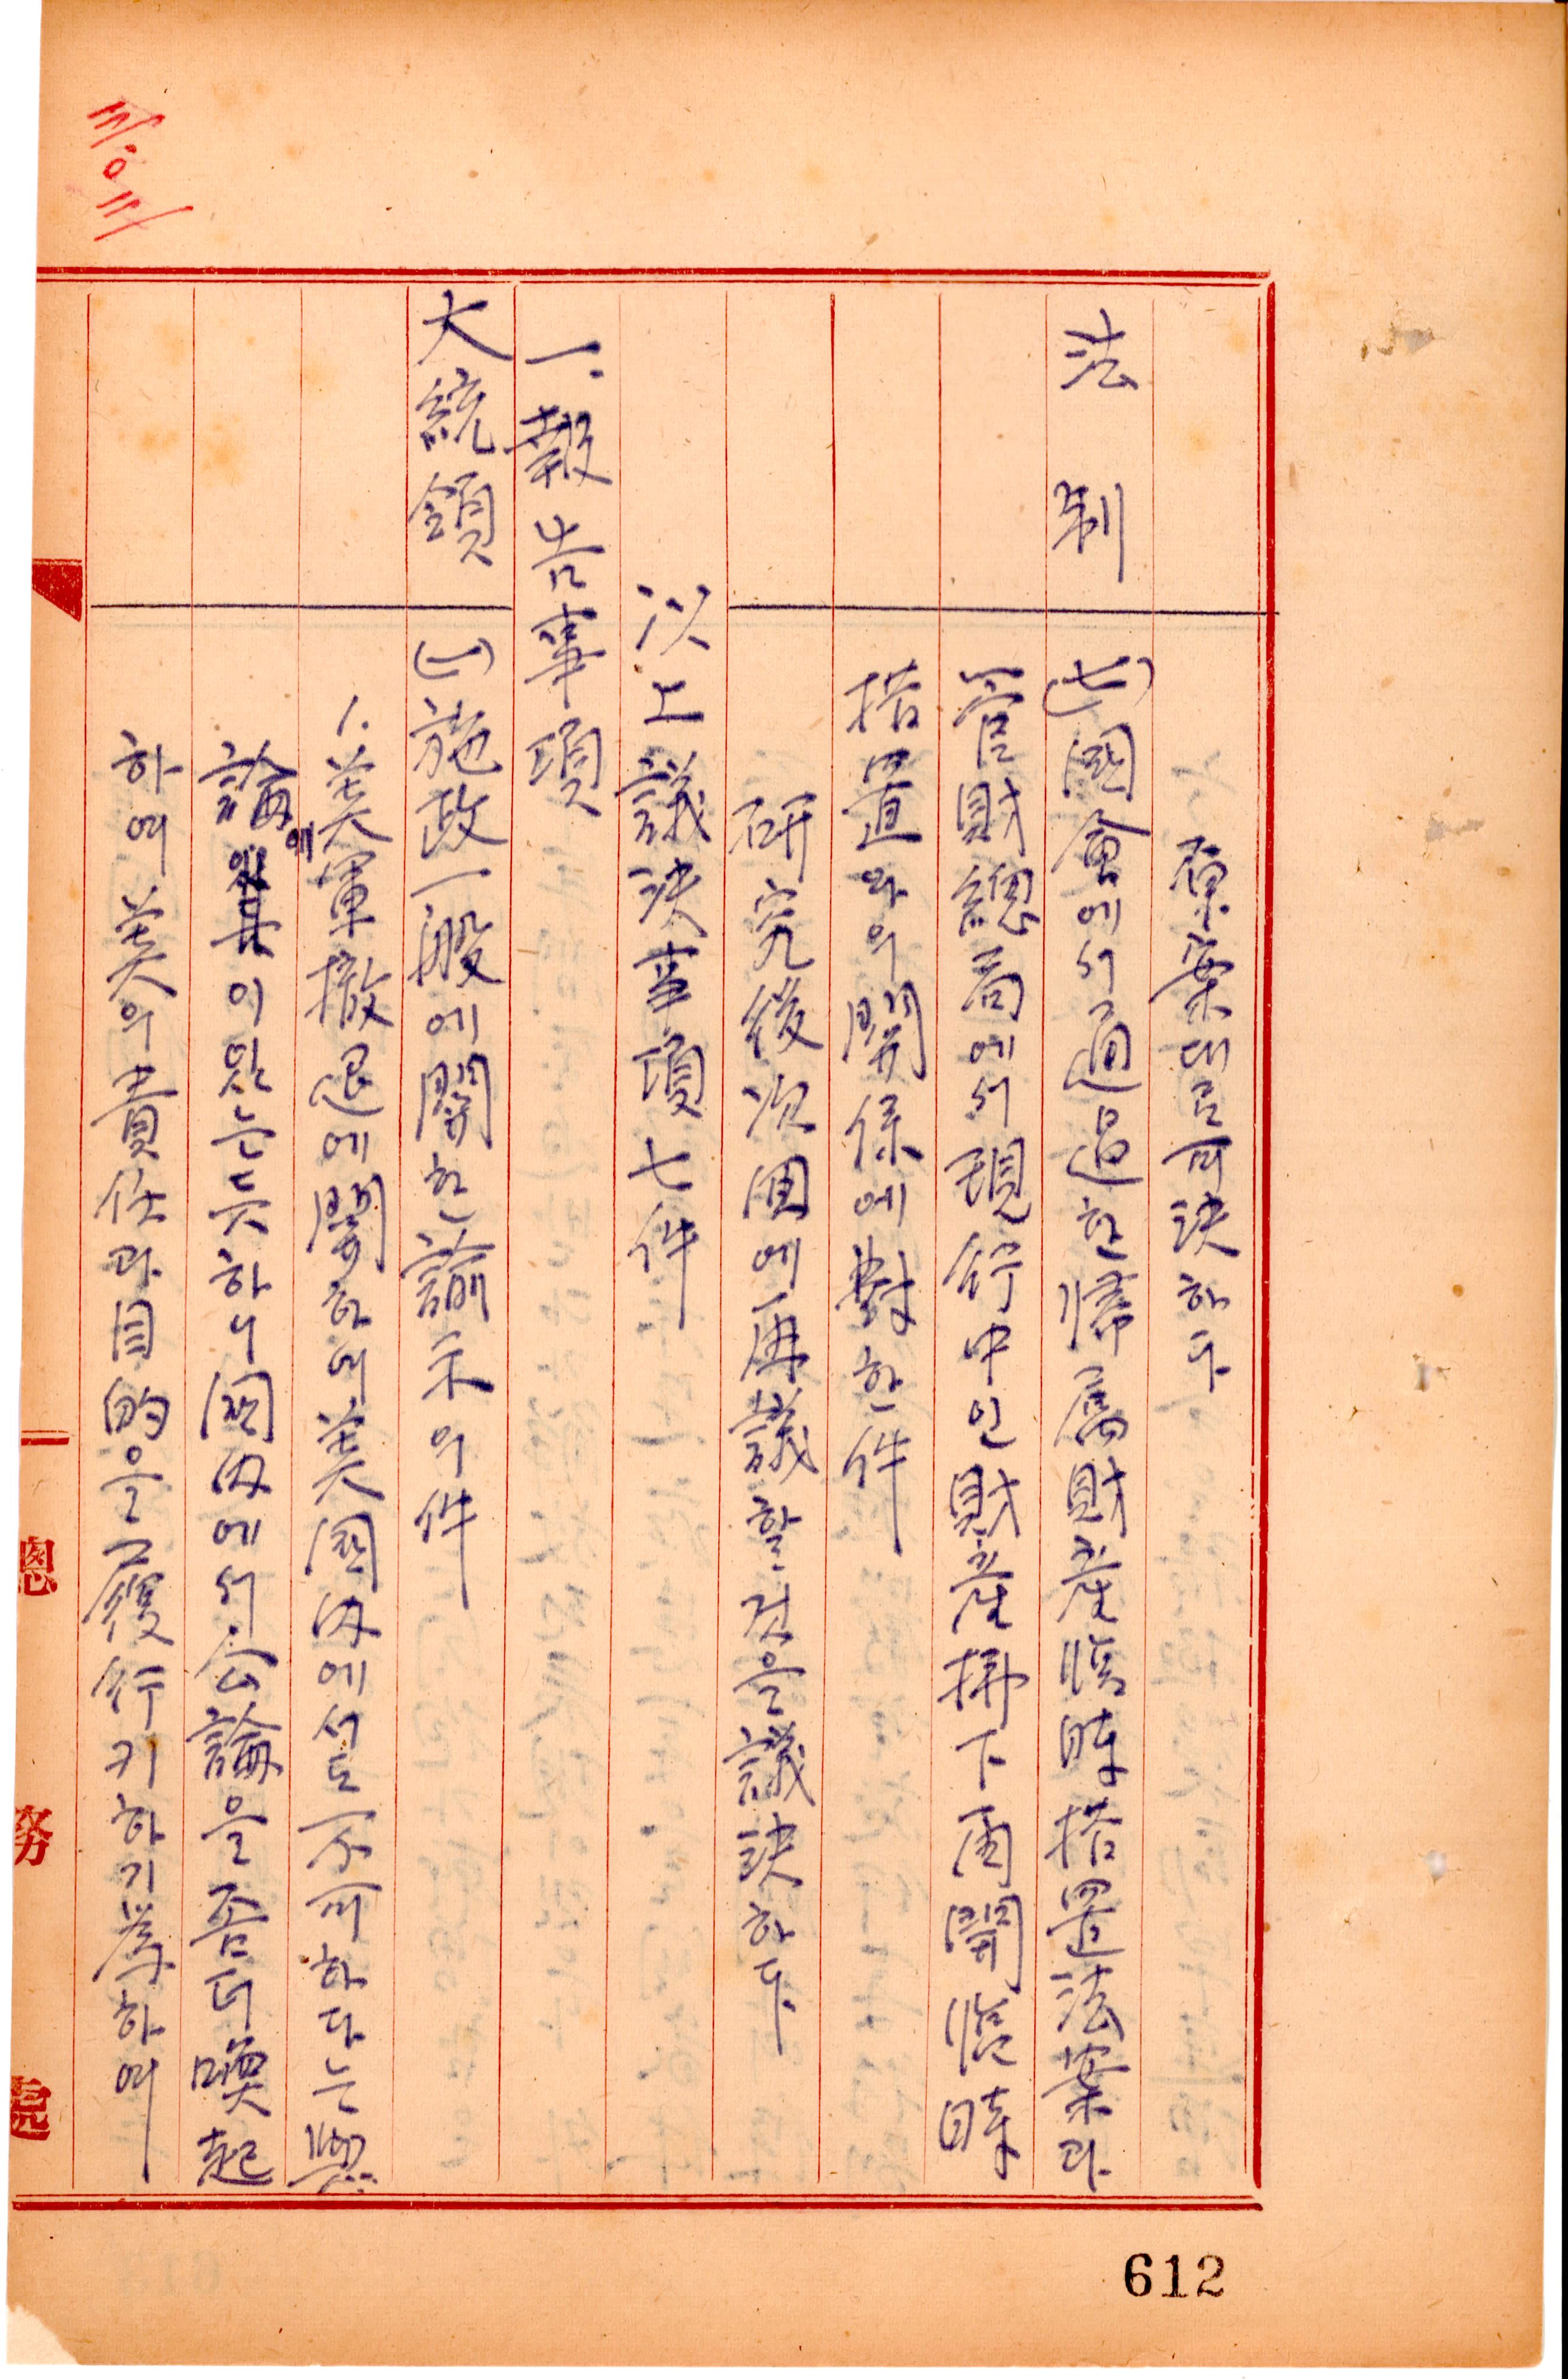 原案대로 可決하다
法制
(七) 國會에서 通過한 歸屬財産臨時措置法案과
管財總局에서 現行中인 財産拂下 再開 臨時
措置와의 關係에 對한 件
研究後 次回에 再議할 것을 議決하다
以上 議決事項 七件
一. 報告事項
大統領
(一) 施政一般에 關한 諭示의 件
1. 美軍撤退에 關하여 美國內에서도 不可하다는 輿
論에
이 있는 듯하니 國內에서 公論을 좀 더 喚起
하여 美의 責任과 目的을 履行키 하기 爲하여
總務處
612